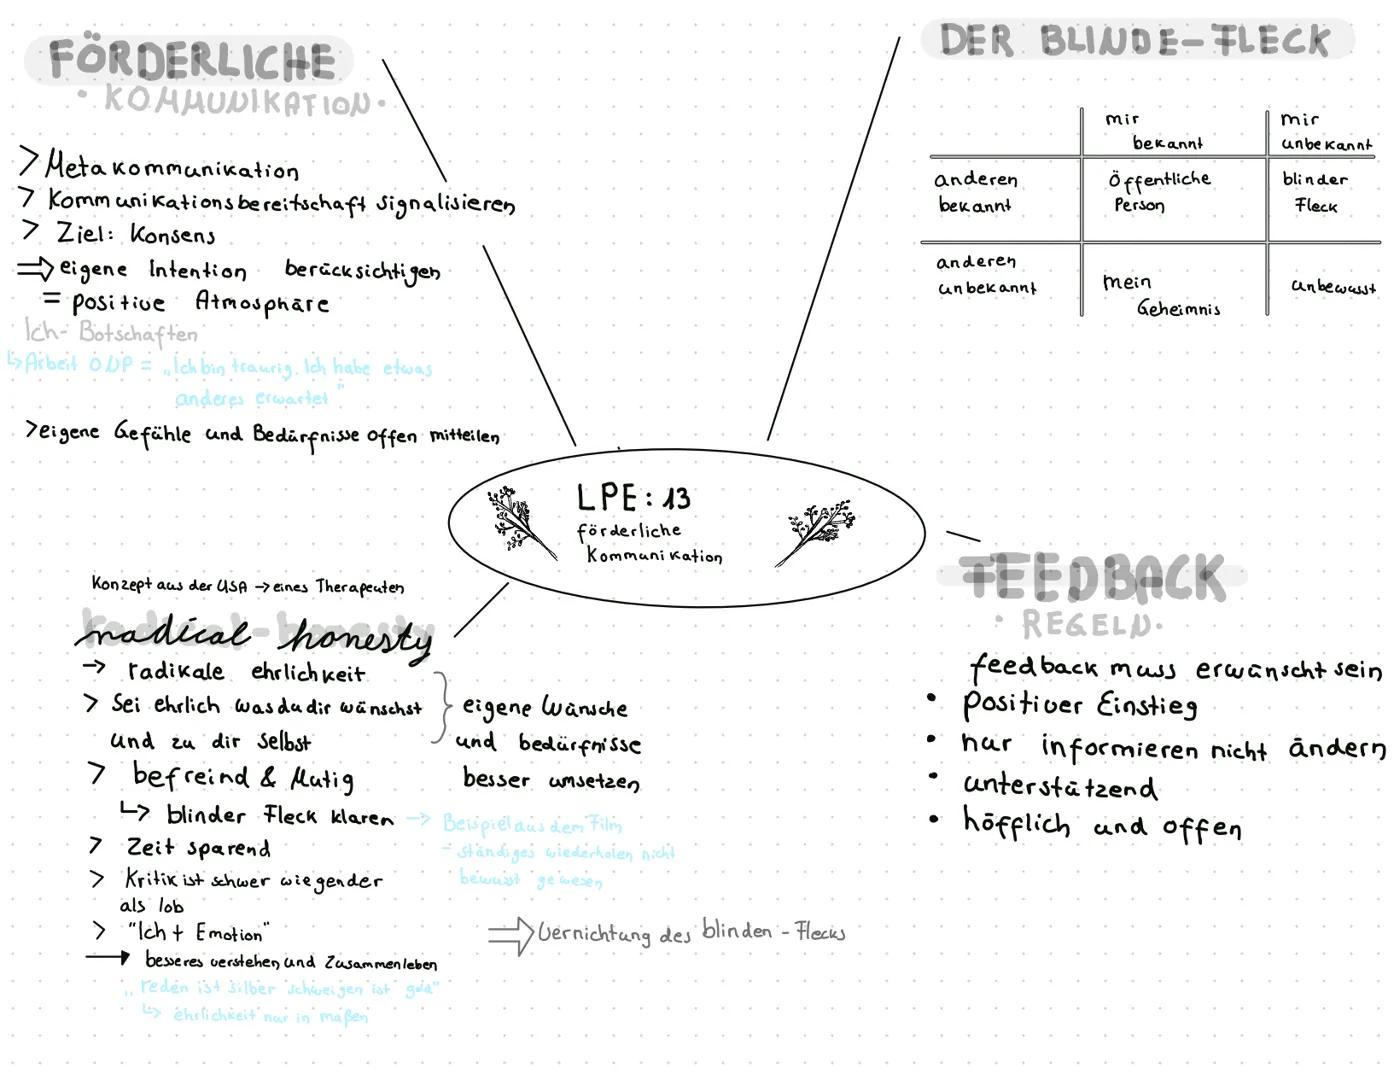 FÖRDERLICHE
• KOMMUNIKATION •
> Metakommunikation
> Kommunikationsbereitschaft signalisieren
> Ziel: Konsens
⇒ eigene Intention berücksichtigen
= positive Atmosphäre
Ich-Botschaften
↳ Arbeit ODP = „Ich bin traurig. Ich habe etwas
anderes erwartet"
> eigene Gefühle und Bedürfnisse offen mitteilen
DER BLINDE-FLECK
mir bekannt
mir unbekannt
anderen bekannt
Öffentliche Person
blinder Fleck
anderen unbekannt
mein Geheimnis
unbewusst
LPE: 13
förderliche
Kommunikation
Konzept aus der USA → eines Therapeuten
radical-honesty
→ radikale ehrlichkeit
> Sei ehrlich was du dir wünschst
und zu dir selbst
eigene Wünsche
und bedürfnisse
besser umsetzen
> befreind & Mutig
↳ blinder Fleck klaren → Beispiel aus dem Film
- ständiges wiederholen nicht
bewusst gewesen
> Zeit sparend
> Kritik ist schwer wiegender
als lob
> "Ich + Emotion"
→ besseres verstehen und Zusammenleben
„reden ist silber schweigen ist gold"
↳ ehrlichkeit nur in maßen
⇒ Vernichtung des blinden - Flecks
FEEDBACK
• REGELN •
feedback muss erwünscht sein
• positiver Einstieg
• nur informieren nicht ändern
• unterstützend
• höfflich und offen